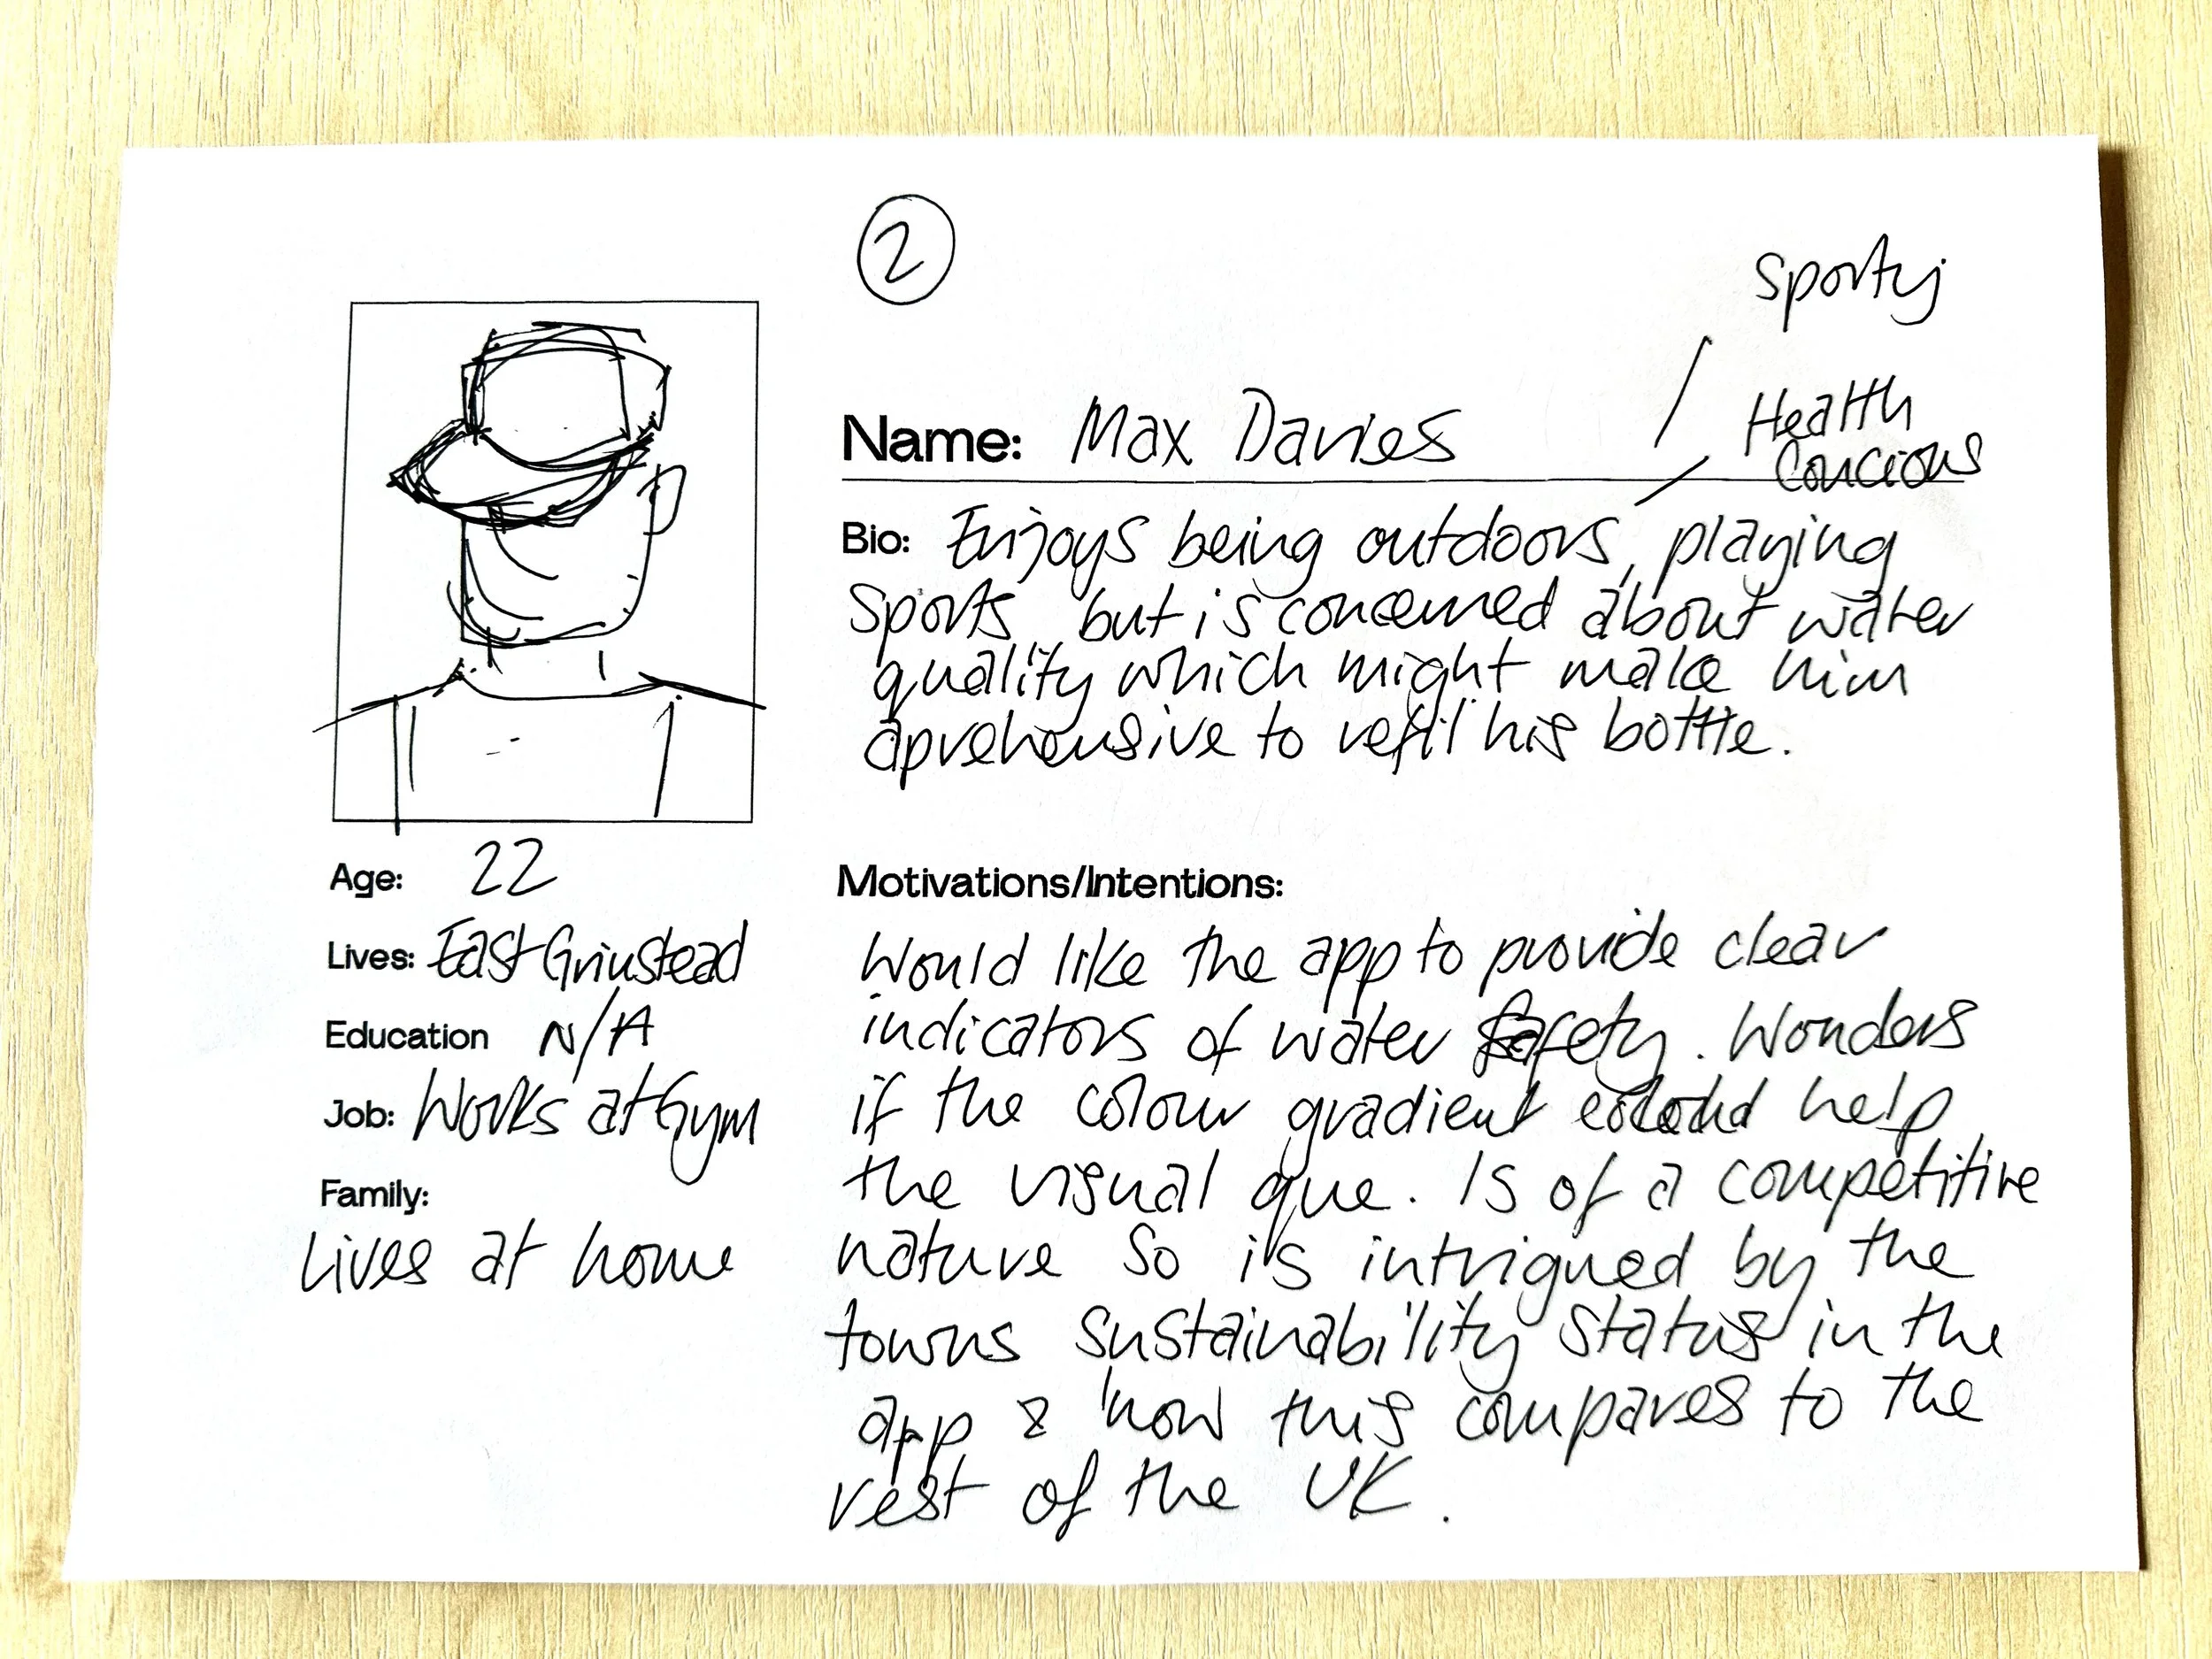 2
Sporty
Health
Concious
Name: Max Davies
Bio: Enjoys being outdoors, playing
Sports but is concerned about water
quality which might make him
aprehensive to refil his bottle.
Age: 22
Lives: East Grinstead
Education N/A
Job: Works at Gym
Family:
Lives at home
Motivations/Intentions:
Would like the app to provide clear
indicators of water safety. Wonders
if the colour gradient could help
the visual que. Is of a competitive
nature so is intrigued by the
towns sustainability status in the
app & how this compares to the
rest of the UK.